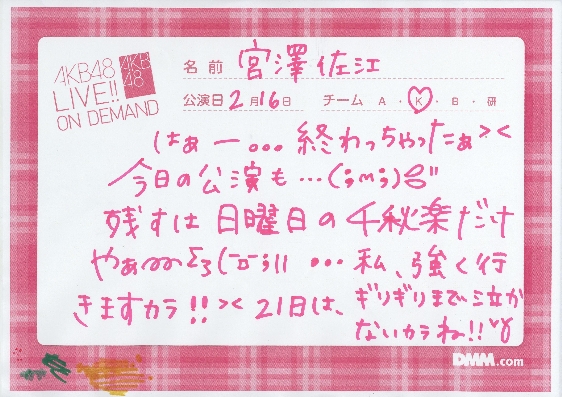 AKB48
LIVE!!
ON DEMAND
AKB
48
名前 宮澤佐江
公演日 2月16日 チーム A・K・B・研
はぁー…終わっちゃったぁ><
今日の公演も…(;m;)
残すは日曜日の千秋楽だけ
やぁ〰Σ3(-ㅍ-;ll …私、強く行
きますカラ!!>< 21日は、ギリギリまで泣か
ないカラね!!
DMM.com